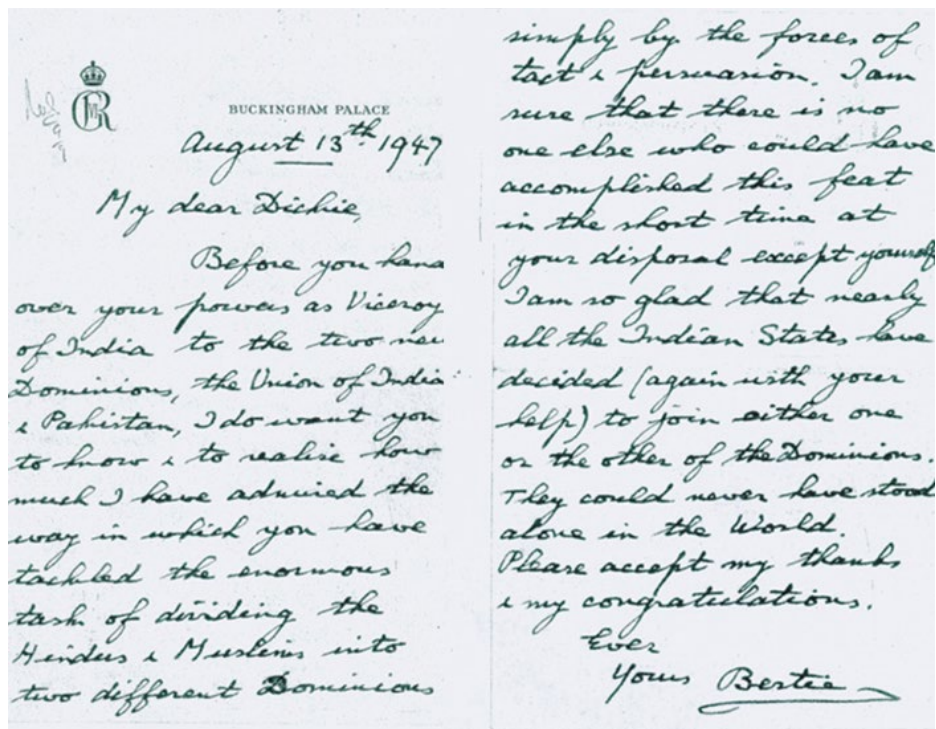 BUCKINGHAM PALACE
August 13th 1947
My dear Dickie,
Before you hand
over your powers as Viceroy
of India to the two new
Dominions, the Union of India
& Pakistan, I do want you
to know & to realise how
much I have admired the
way in which you have
tackled the enormous
task of dividing the
Hindus & Muslims into
two different Dominions
simply by the forces of
tact & persuasion. I am
sure that there is no
one else who could have
accomplished this feat
in the short time at
your disposal except yourself
I am so glad that nearly
all the Indian States have
decided (again with your
help) to join either one
or the other of the Dominions.
They could never have stood
alone in the World.
Please accept my thanks
& my congratulations.
Ever
Yours Bertie